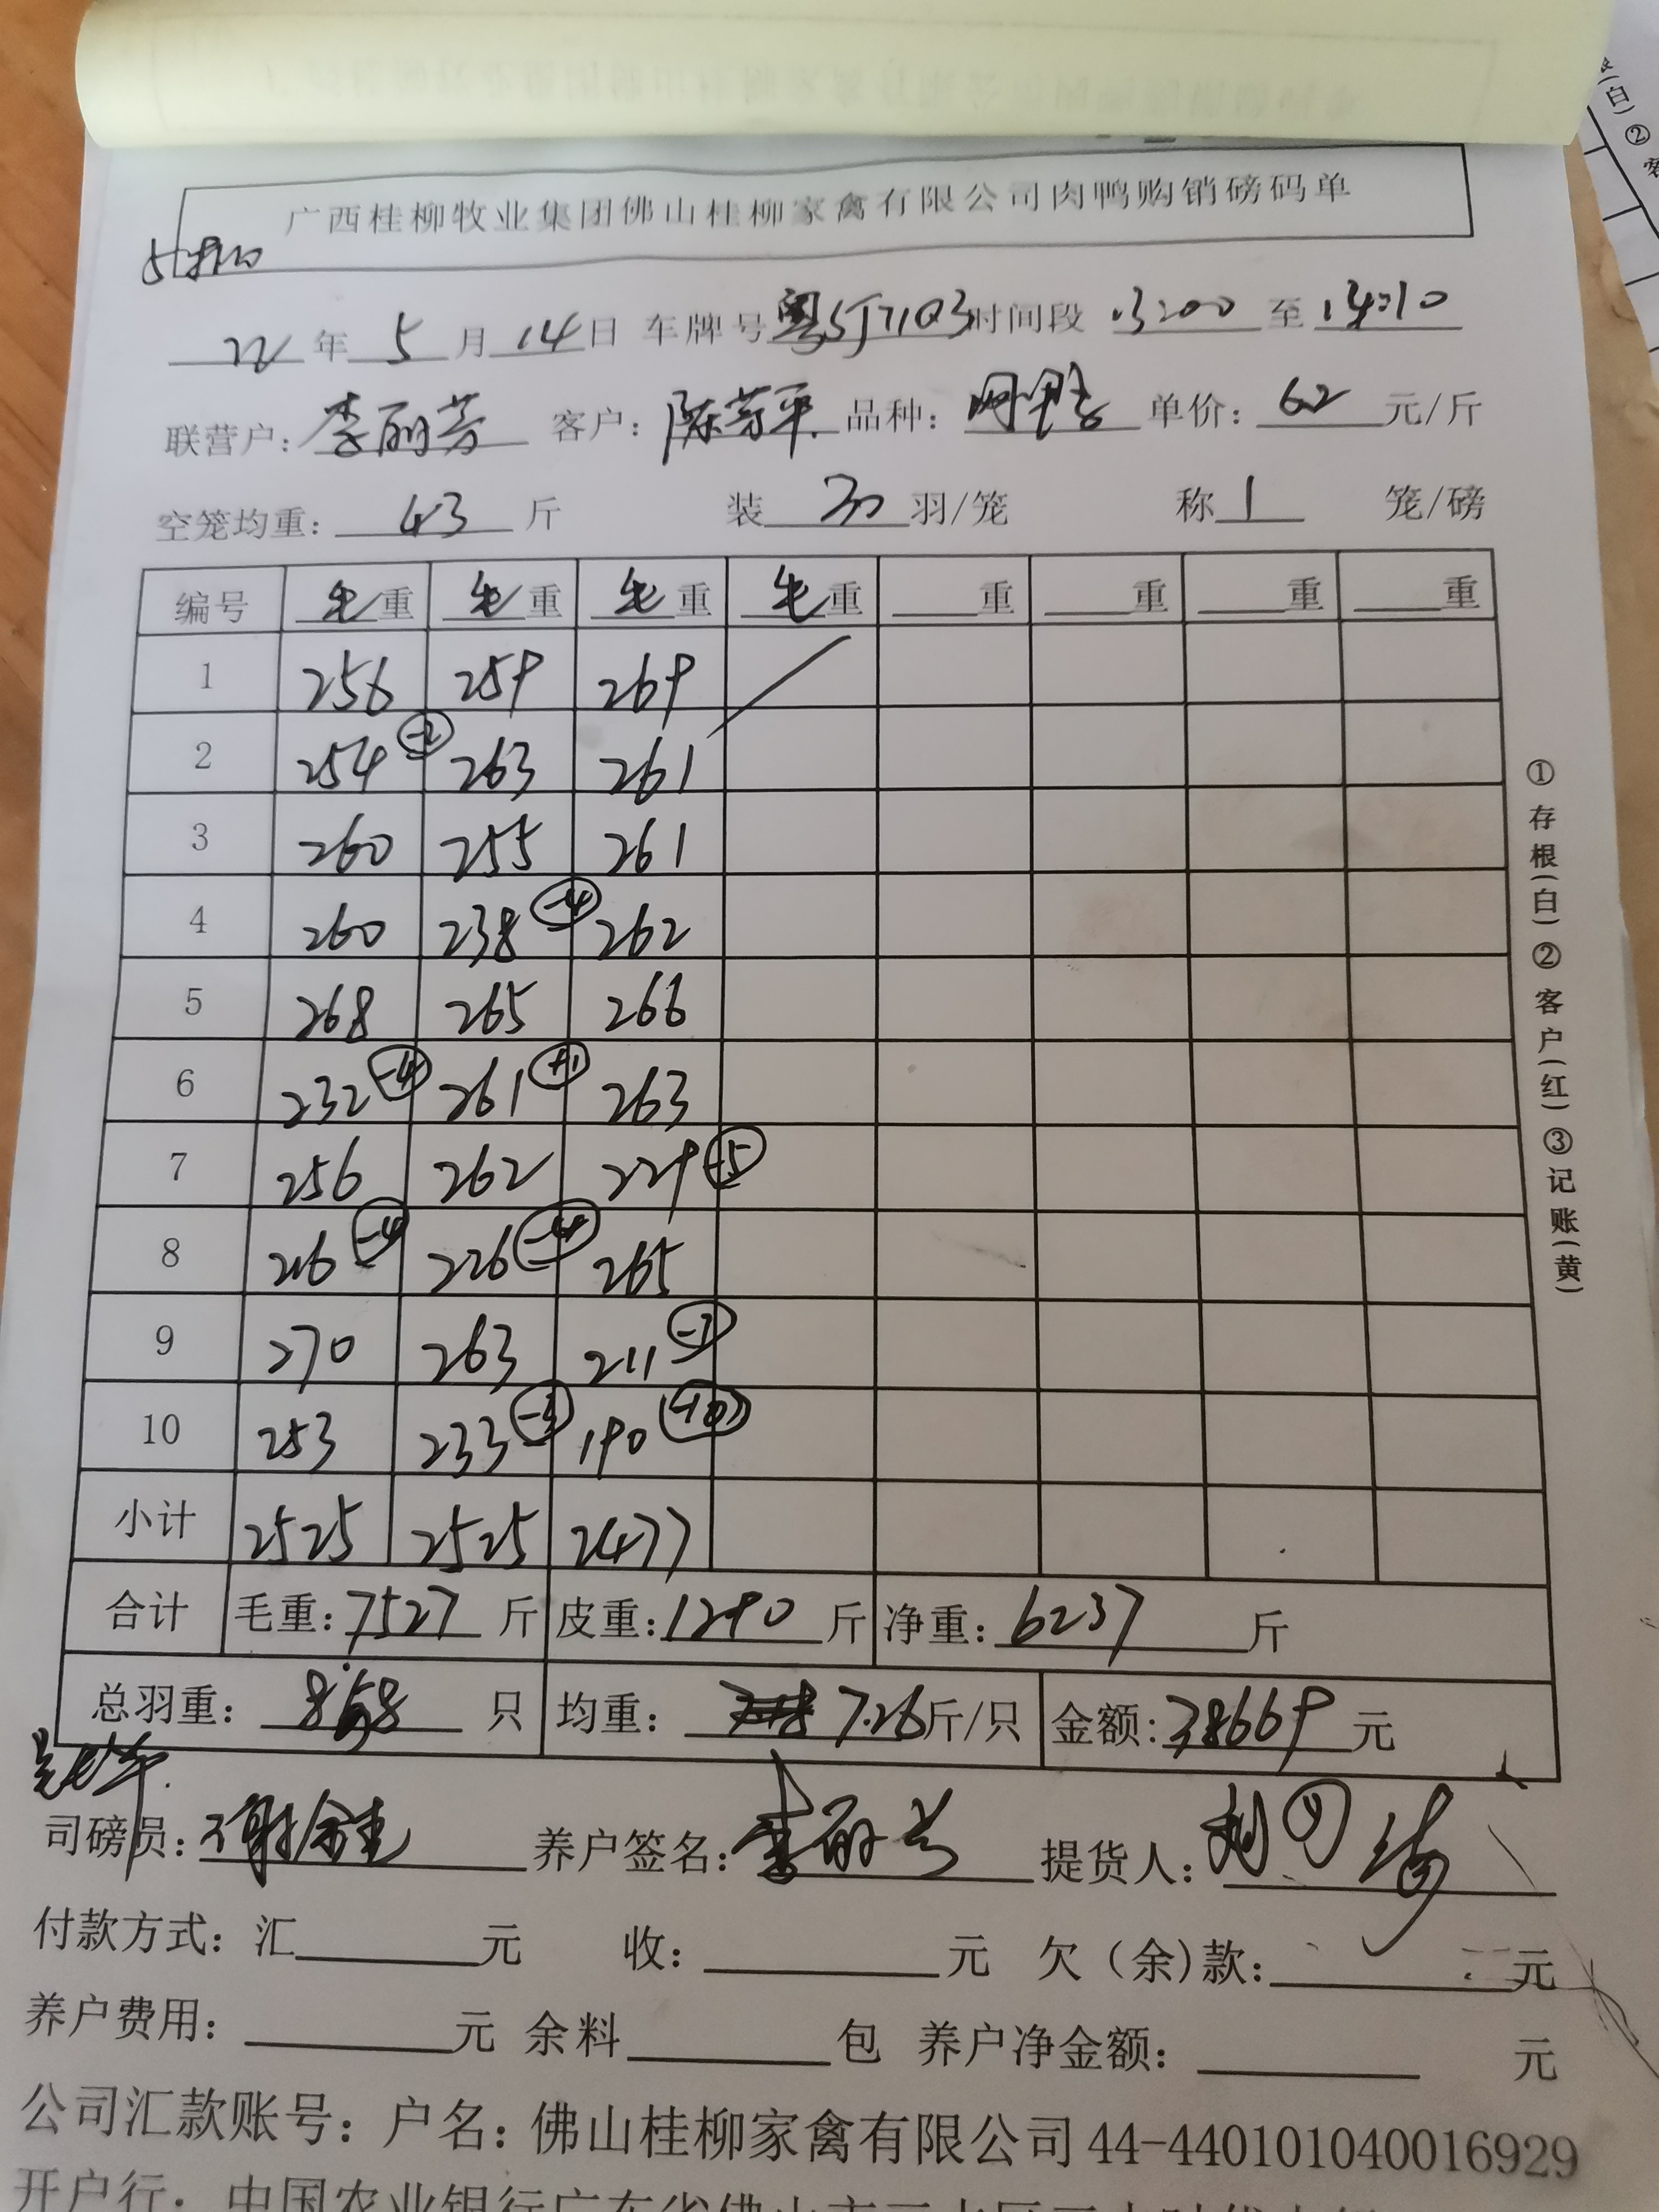 广西桂柳牧业集团佛山桂柳家禽有限公司肉鸭购销磅码单
22年5月14日 车牌号粤 时间段13:00至14:10
联营户:李丽芳 客户:陈芳平 品种: 单价:6.2元/斤
空笼均重:43斤 装30羽/笼 称1笼/磅
编号 毛重 毛重 毛重 毛重 重 重 重 重
1 256 259 269
2 254 -2 263 261
3 260 255 261
4 260 238 -4 262
5 268 265 266
6 232 -4 261 +1 263
7 256 262 229 -5
8 216 -4 226 -4 265
9 270 263 211
10 253 233 190
小计 2525 2525 2477
合计 毛重:7527斤 皮重:1290斤 净重:6237斤
总羽重: 只 均重:7.26斤/只 金额:38669元
司磅员: 养户签名:李丽芳 提货人:
付款方式:汇 元 收: 元 欠(余)款: 元
养户费用: 元 余料 包 养户净金额: 元
公司汇款账号:户名:佛山桂柳家禽有限公司44-440101040016929
开户行:中国农业银行广东省佛山市三水区三水时代支行
①存根(白)②客户(红)③记账(黄)